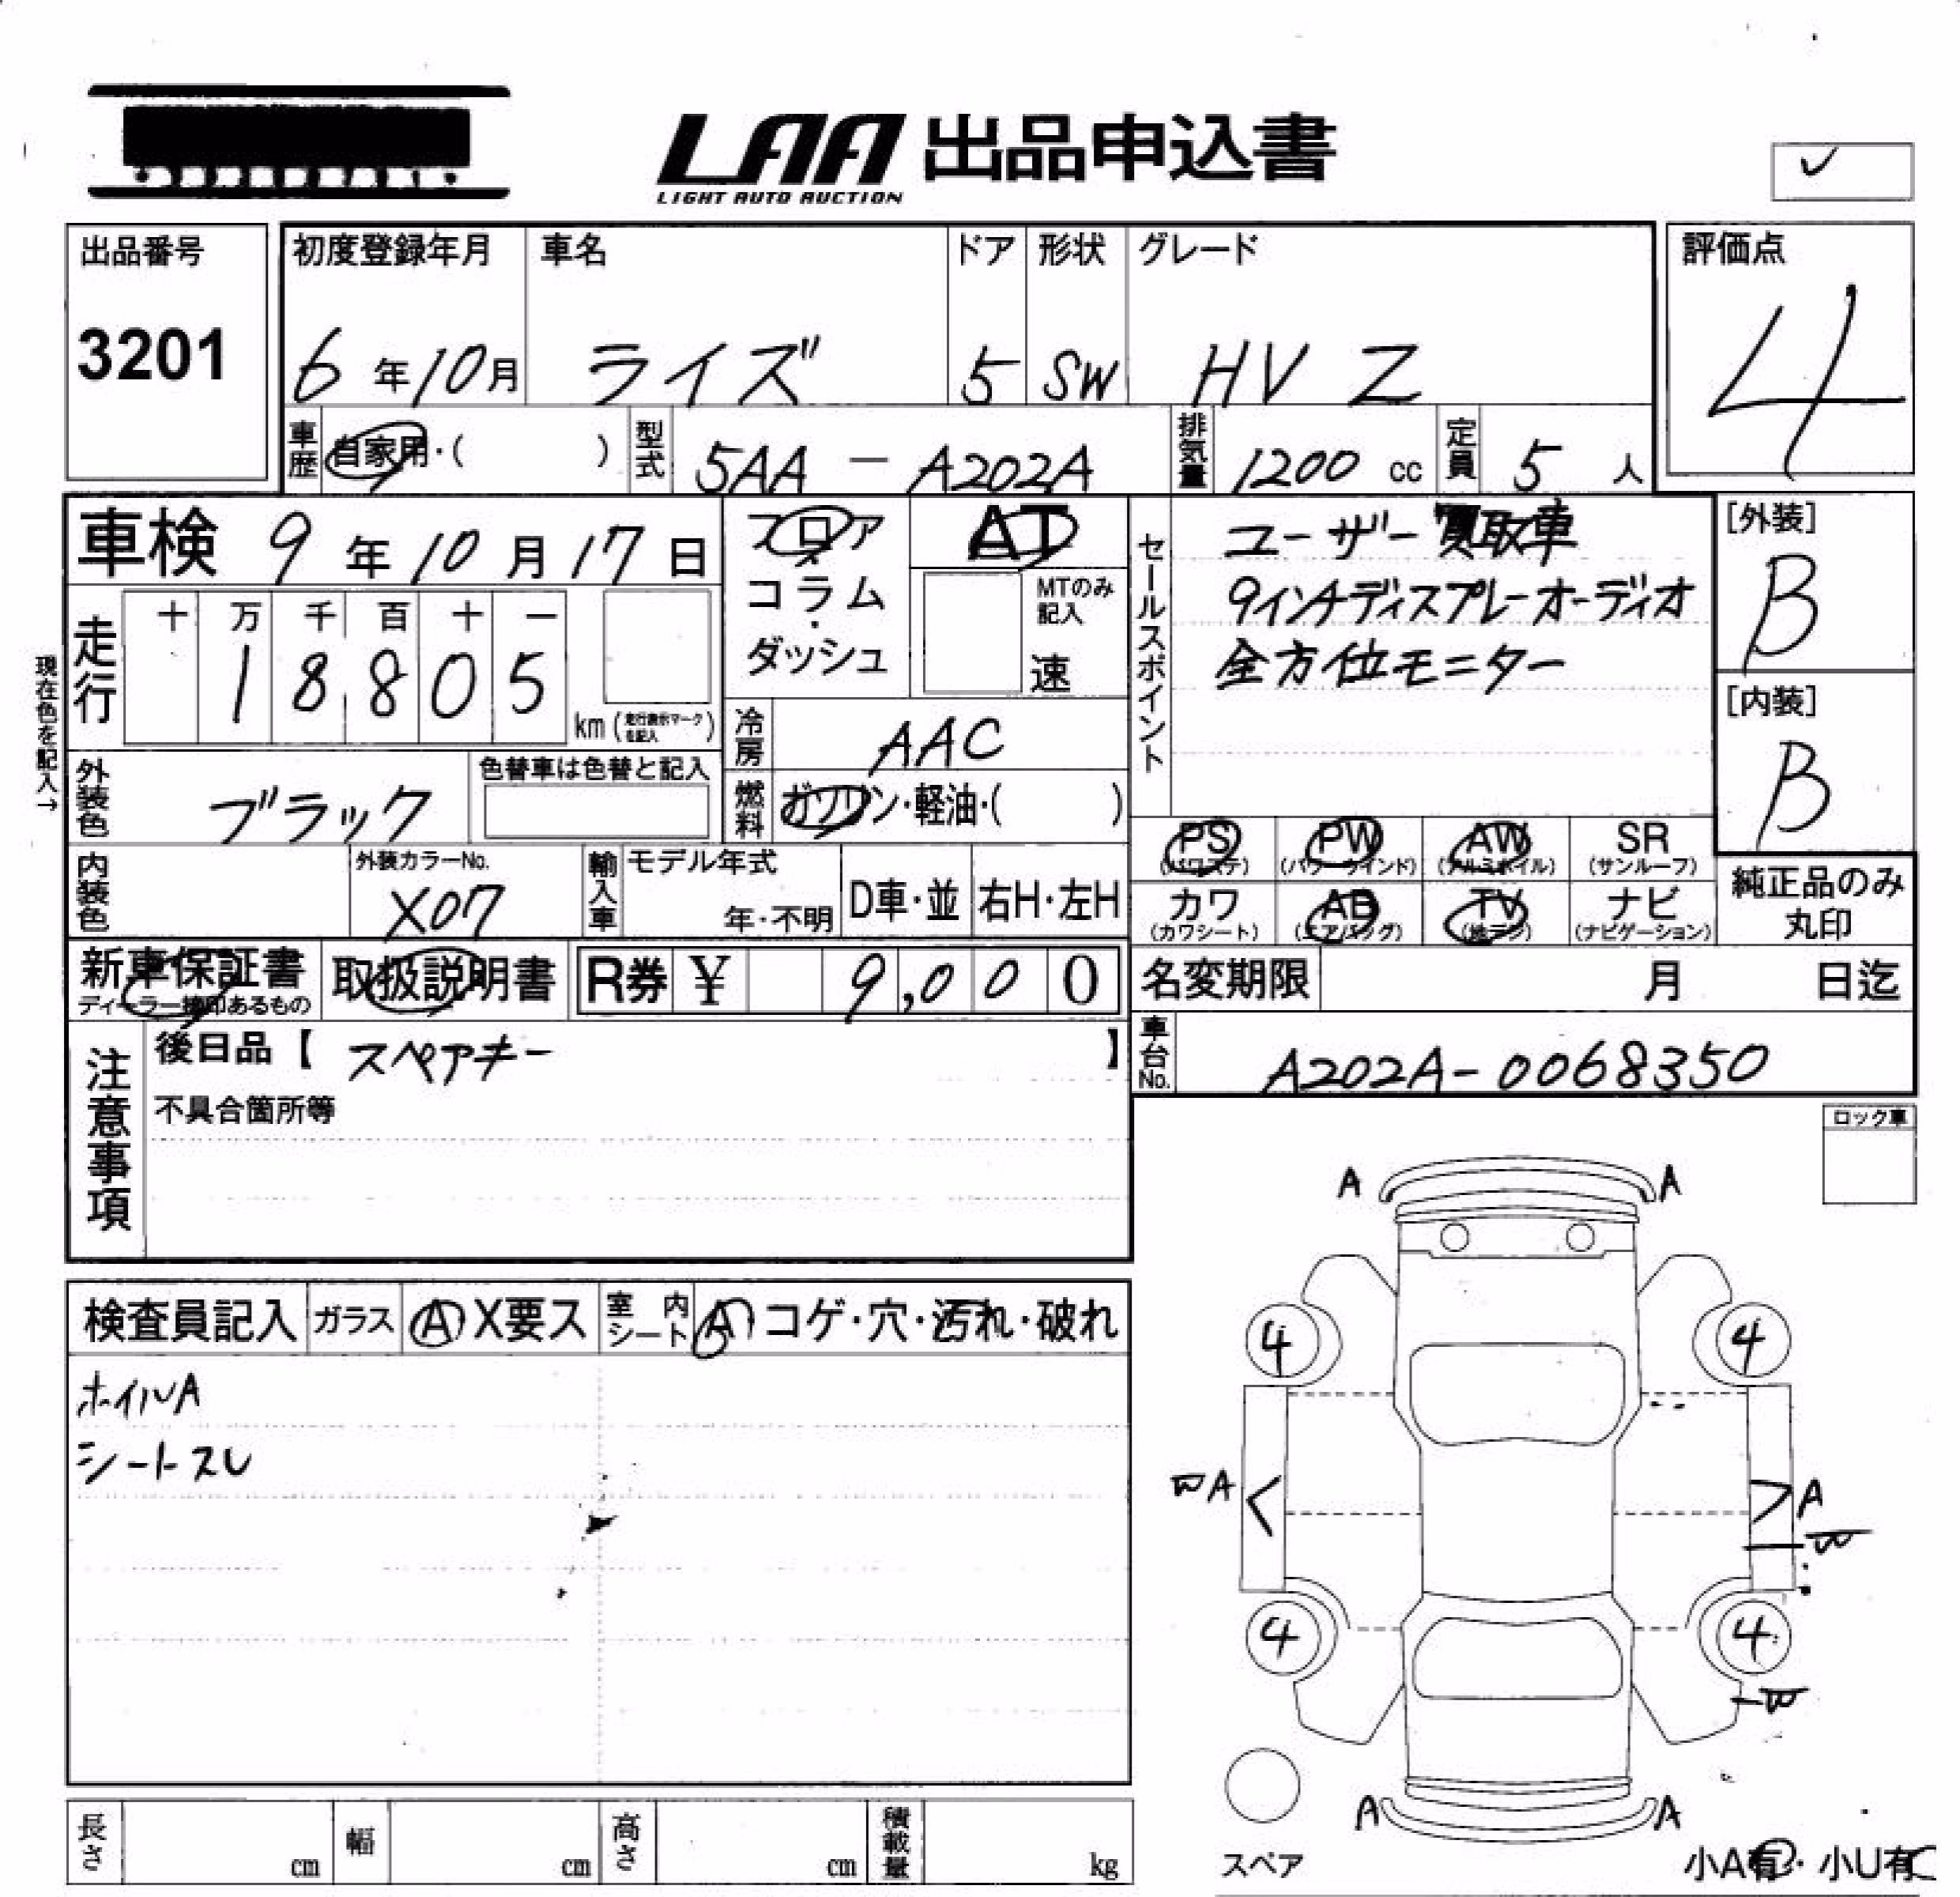 LAA 出品申込書
LIGHT AUTO AUCTION
出品番号
3201
初度登録年月
6 年 10 月
車名
ライズ
ドア
5
形状
SW
グレード
HV Z
評価点
4
車歴
自家用・( )
型式
5AA - A202A
排気量
1200 cc
定員
5 人
車検 9 年 10 月 17 日
フロア
コラム
・
ダッシュ
AT
MTのみ
記入
速
セールスポイント
ユーザー買取車
9インチディスプレーオーディオ
全方位モニター
[外装]
B
[内装]
B
現在色を記入→
走行
十 万 千 百 十 一
1 8 8 0 5
km (走行表示マークを記入)
冷房
AAC
外装色
ブラック
色替車は色替と記入
燃料
ガソリン・軽油・( )
PS
(パワステ)
PW
(パワーウインド)
AW
(アルミホイル)
SR
(サンルーフ)
カワ
(カワシート)
AB
(エアバッグ)
TV
(地デジ)
ナビ
(ナビゲーション)
純正品のみ
丸印
内装色
外装カラーNo.
X07
輸入車
モデル年式
年・不明
D車・並
右H・左H
新車保証書
ディーラー捺印あるもの
取扱説明書
R券 ¥ 9,000
名変期限 月 日迄
注意事項
後日品【 スペアキー 】
不具合箇所等
車台No.
A202A-0068350
ロック車
検査員記入
ガラス
A X要ス
室内シート
A コゲ・穴・汚れ・破れ
ホイルA
シートスレ
A A
4 4
A A
4 4
A A
スペア
小A有・小U有
長さ cm
幅 cm
高さ cm
積載量 kg